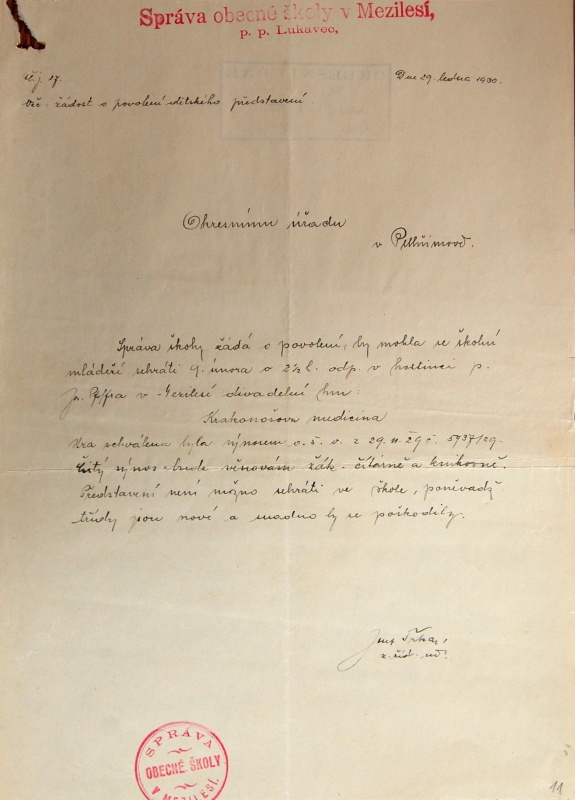 Správa obecné školy v Mezilesí,
p. p. Lukavec,
Č. j. 17.
Dne 29. ledna 1930.
Věc: žádost o povolení dětského představení
Okresnímu úřadu
v Pelhřimově.
Správa školy žádá o povolení, by mohla se školní
mládeží sehráti 9. února o 2½ h. odp. v hostinci p.
v Mezilesí divadelní hru:
Krakonošova medicina
Hra schválena byla výnosem o. š. v. z 29. 11. 29 č. 5737/29.
Čistý výnos bude věnován žák. čítárně a knihovně.
Představení není možno sehráti ve škole, poněvadž
třídy jsou nové a snadno by se poškodily.
Josef
z. říd. uč.
SPRÁVA
OBECNÉ ŠKOLY
V MEZILESÍ.
11